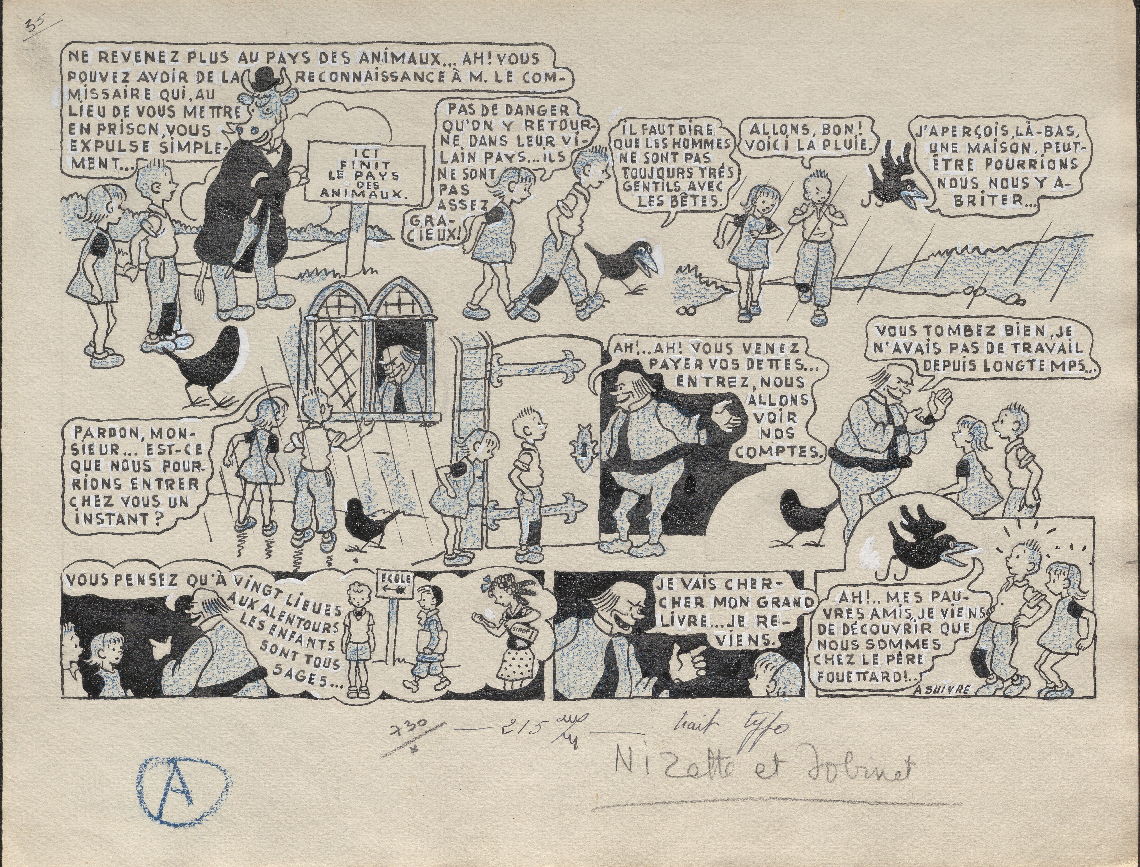 35
NE REVENEZ PLUS AU PAYS DES ANIMAUX... AH! VOUS
POUVEZ AVOIR DE LA RECONNAISSANCE À M. LE COM-
MISSAIRE QUI, AU
LIEU DE VOUS METTRE
EN PRISON, VOUS
EXPULSE SIMPLE-
MENT...
ICI
FINIT
LE PAYS
DES
ANIMAUX.
PAS DE DANGER
QU'ON Y RETOUR-
NE, DANS LEUR VI-
LAIN PAYS... ILS
NE SONT
PAS
ASSEZ
GRA-
CIEUX!
IL FAUT DIRE,
QUE LES HOMMES
NE SONT PAS
TOUJOURS TRÈS
GENTILS AVEC
LES BÊTES.
ALLONS, BON!
VOICI LA PLUIE.
J'APERÇOIS, LÀ-BAS,
UNE MAISON, PEUT-
ÊTRE POURRIONS
NOUS, NOUS Y A-
BRITER...
PARDON, MON-
SIEUR... EST-CE
QUE NOUS POUR-
RIONS ENTRER
CHEZ VOUS UN
INSTANT?
AH!...AH! VOUS VENEZ
PAYER VOS DETTES...
ENTREZ, NOUS
ALLONS
VOIR
NOS
COMPTES.
VOUS TOMBEZ BIEN, JE
N'AVAIS PAS DE TRAVAIL
DEPUIS LONGTEMPS...
VOUS PENSEZ QU'À VINGT LIEUES
AUX ALENTOURS
LES ENFANTS
SONT TOUS
SAGES...
ECOLE
JE VAIS CHER-
CHER MON GRAND
LIVRE...JE RE-
VIENS.
AH!.. MES PAU-
VRES AMIS, JE VIENS
DE DÉCOUVRIR QUE
NOUS SOMMES
CHEZ LE PÈRE
FOUETTARD!..
A SUIVRE
730 — 215 — trait typo
Nizette et Jobinet
A